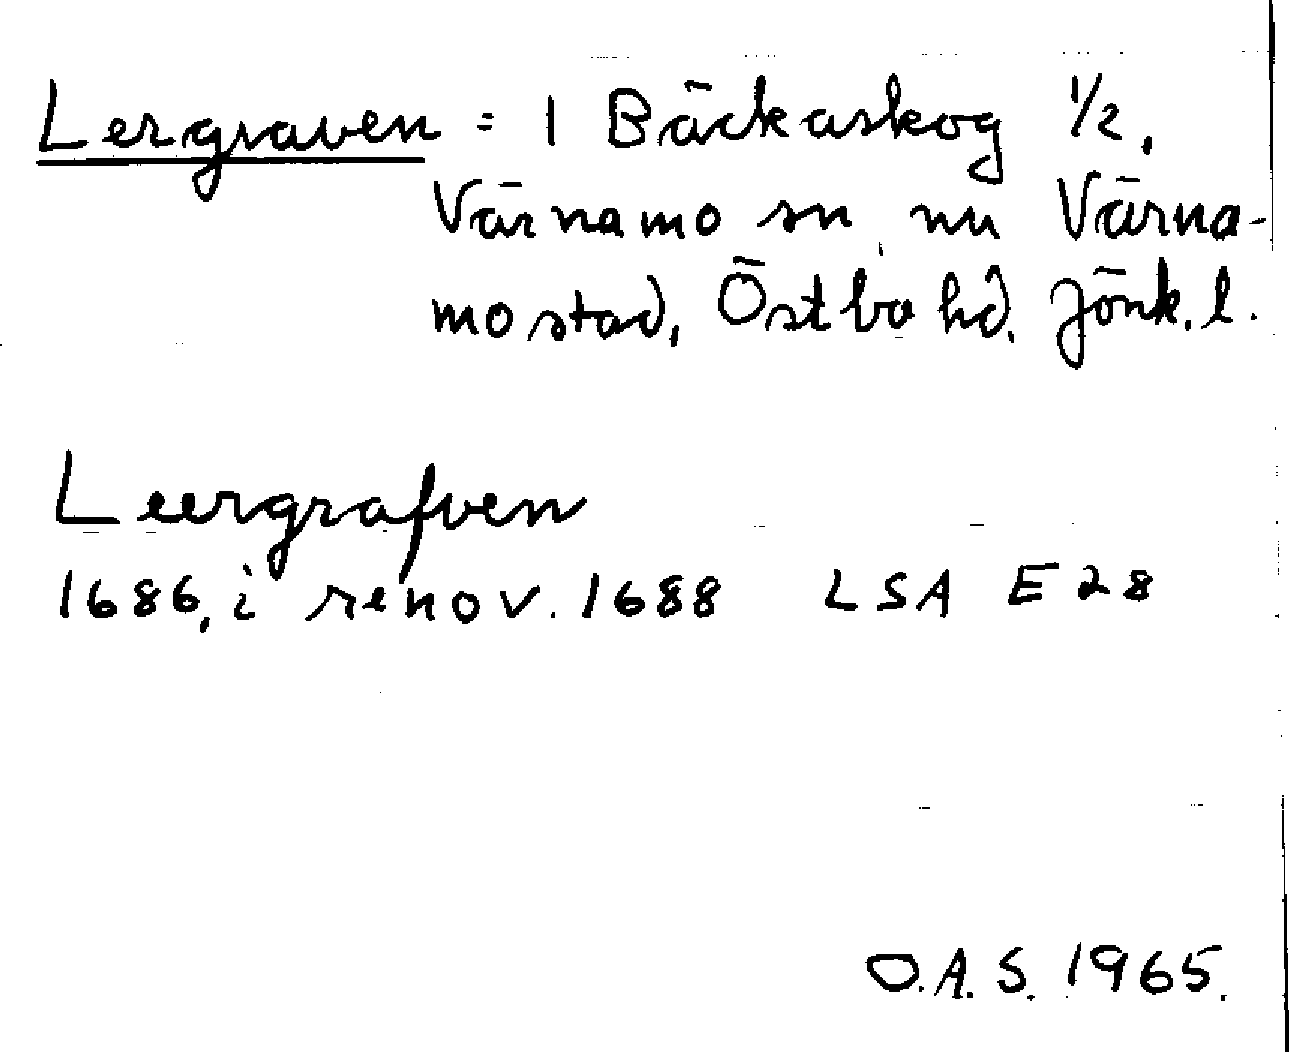 Lergraven = 1 Bäckaskog 1/2,
Värnamo sn, nu Värna-
mo stad, Östbo hd. Jönk. l.
Leergrafven
1686, i renov. 1688 LSA E 28
O.A.S. 1965.